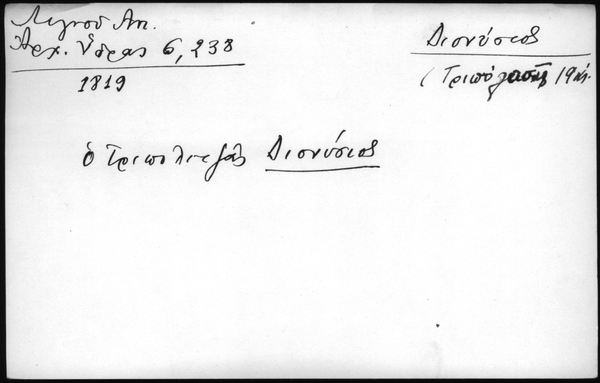 Λιγνοῦ Ἀν.
Ἀρχ. Ὕδρας 6, 238
1819
Διονύσιος
(Τριπόλεως 19αι.
ὁ Τριπολιτζᾶς Διονύσιος